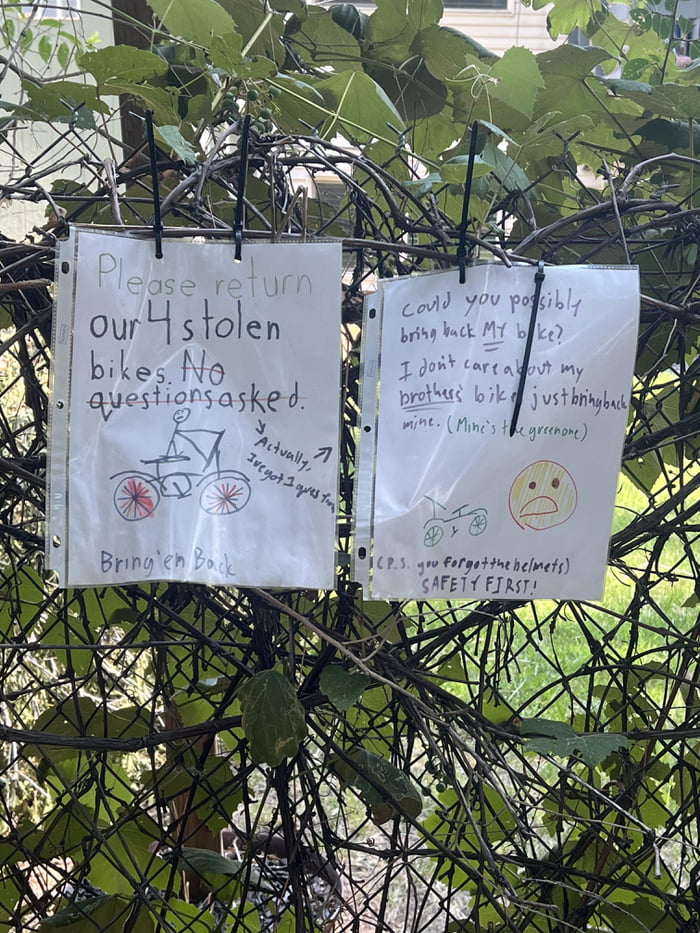 Please return
our 4 stolen
bikes. No
questions asked.
Actually,
I've got 1 question
Bring 'em Back
Could you possibly
bring back MY bike?
I don't care about my
brothers bike, just bring back
mine. (Mine's the green one)
(P.S. you forgot the helmets)
SAFETY FIRST!